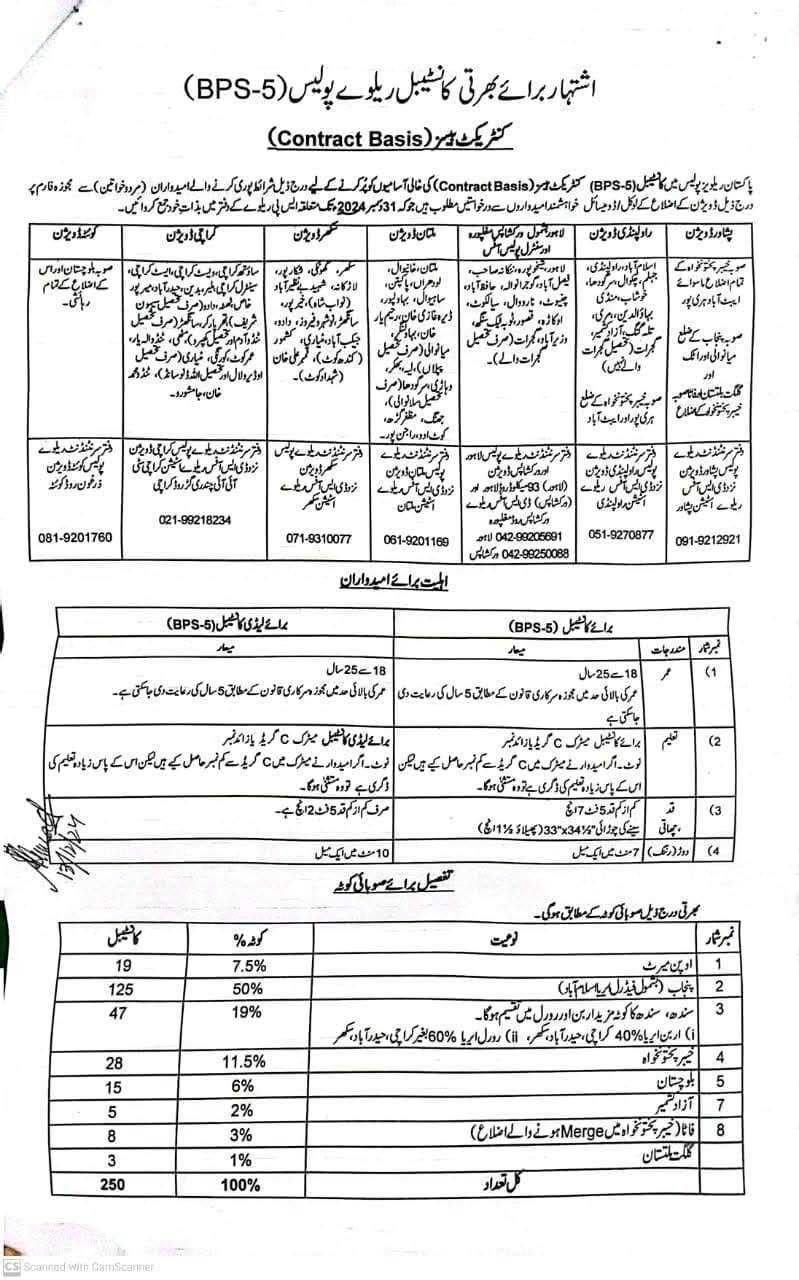 اشتہار برائے بھرتی کانسٹیبل ریلوے پولیس (BPS-5)
کنٹریکٹ بیسز (Contract Basis)
پاکستان ریلویز پولیس میں کانسٹیبل (BPS-5) کنٹریکٹ بیسز (Contract Basis) کی خالی آسامیوں کو پُر کرنے کے لیے درج ذیل شرائط پوری کرنے والے امیدواران (مرد و خواتین) سے مجوزہ فارم پر
درج ذیل ڈویژن کے اضلاع کے لوکل / ڈومیسائل خواہشمند امیدواروں سے درخواستیں مطلوب ہیں جو کہ 31 دسمبر 2024 تک متعلقہ ایس پی ریلوے کے دفتر میں بذات خود جمع کروائیں۔
پشاور ڈویژن
صوبہ خیبر پختونخواہ کے
تمام اضلاع ماسوائے
ایبٹ آباد ہری پور
صوبہ پنجاب کے ضلع
میانوالی اور اٹک
اور
گلگت بلتستان / فاٹا صوبہ
خیبر پختونخواہ کے اضلاع
دفتر سپرنٹنڈنٹ ریلوے
پولیس پشاور ڈویژن
نزد ڈی ایس آفس
ریلوے اسٹیشن پشاور
091-9212921
راولپنڈی ڈویژن
اسلام آباد، راولپنڈی،
جہلم، چکوال، سرگودھا،
خوشاب، منڈی
بہاؤالدین، مری،
تلہ گنگ، آزاد کشمیر،
گجرات (تحصیل گجرات
والے نہیں)
صوبہ خیبر پختونخواہ کے ضلع
ہری پور اور ایبٹ آباد
دفتر سپرنٹنڈنٹ ریلوے
پولیس راولپنڈی ڈویژن
نزد ڈی ایس آفس ریلوے
اسٹیشن راولپنڈی
051-9270877
لاہور بشمول ورکشاپس مغلپورہ
اور سنٹرل پولیس آفس
لاہور، شیخوپورہ، ننکانہ صاحب،
فیصل آباد، گوجرانوالہ، حافظ آباد،
چنیوٹ، نارووال، سیالکوٹ،
اوکاڑہ، قصور، ٹوبہ ٹیک سنگھ،
وزیر آباد، گجرات (صرف تحصیل
گجرات والے)۔
دفتر سپرنٹنڈنٹ ریلوے پولیس لاہور
اور ورکشاپس ڈویژن
(لاہور) 93-میکلوڈ روڈ لاہور اور
(ورکشاپس) ڈی ایس آفس ریلوے
ورکشاپس روڈ مغلپورہ
042-99205691 لاہور
042-99250068 ورکشاپس
ملتان ڈویژن
ملتان، خانیوال،
لودھراں، پاکپتن،
ساہیوال، بہاولپور،
ڈیرہ غازی خان، رحیم یار
خان، بہاولنگر،
میانوالی (صرف تحصیل
پپلاں)، لیہ، بھکر،
وہاڑی، سرگودھا (صرف
تحصیل سلانوالی)،
جھنگ، مظفر گڑھ،
کوٹ ادو، راجن پور۔
دفتر سپرنٹنڈنٹ ریلوے
پولیس ملتان ڈویژن
نزد ڈی ایس آفس ریلوے
اسٹیشن ملتان
061-9201169
سکھر ڈویژن
سکھر، گھوٹکی، شکارپور،
لاڑکانہ، شہید بے نظیر آباد
(نواب شاہ)، خیرپور،
سانگھڑ، نوشہرو فیروز، دادو،
جیکب آباد، مٹیاری، کشمور
(کندھ کوٹ)، قمبر علی خان
(شہداد کوٹ)۔
دفتر سپرنٹنڈنٹ ریلوے پولیس
سکھر ڈویژن
نزد ڈی ایس آفس ریلوے
اسٹیشن سکھر
071-9310077
کراچی ڈویژن
ساؤتھ کراچی، ویسٹ کراچی، ایسٹ کراچی،
سینٹرل کراچی، ملیر، بدین، حیدرآباد، میرپور
خاص، ٹھٹھہ، دادو (صرف تحصیل سیہون
شریف)، تھرپارکر، سانگھڑ (صرف تحصیل
ٹنڈو آدم اور تحصیل کھپرو)، مٹھی، ٹنڈوالہ یار،
عمر کوٹ، کورنگی، مٹیاری (صرف تحصیل
اوڈیرو لال اور تحصیل اللہ ڈنو ساند)، ٹنڈو محمد
خان، جامشورو۔
دفتر سپرنٹنڈنٹ ریلوے پولیس کراچی ڈویژن
نزد ڈی ایس آفس ریلوے اسٹیشن کراچی سٹی
آئی آئی چندریگر روڈ کراچی
021-99218234
کوئٹہ ڈویژن
صوبہ بلوچستان اور اس
کے اضلاع کے تمام
رہائشی۔
دفتر سپرنٹنڈنٹ ریلوے
پولیس کوئٹہ ڈویژن
زرغون روڈ کوئٹہ
081-9201760
اہلیت برائے امیدواران
برائے کانسٹیبل (BPS-5) برائے لیڈی کانسٹیبل (BPS-5)
نمبر شمار مندرجات معیار معیار
(1 عمر 18 سے 25 سال
عمر کی بالائی حد میں مجوزہ سرکاری قانون کے مطابق 5 سال کی رعایت دی
جا سکتی ہے
18 سے 25 سال
عمر کی بالائی حد میں مجوزہ سرکاری قانون کے مطابق 5 سال کی رعایت دی جا سکتی ہے۔
(2 تعلیم برائے کانسٹیبل میٹرک C گریڈ یا زائد نمبر
نوٹ۔ اگر امیدوار نے میٹرک میں C گریڈ سے کم نمبر حاصل کیے ہیں لیکن
اس کے پاس زیادہ تعلیم کی ڈگری ہے تو وہ مستثنیٰ ہوگا۔
برائے لیڈی کانسٹیبل میٹرک C گریڈ یا زائد نمبر
نوٹ۔ اگر امیدوار نے میٹرک میں C گریڈ سے کم نمبر حاصل کیے ہیں لیکن اس کے پاس زیادہ تعلیم کی
ڈگری ہے تو وہ مستثنیٰ ہوگا۔
(3 قد کم از کم قد 5 فٹ 7 انچ صرف کم از کم قد 5 فٹ 2 انچ ہے۔
چھاتی، سینے کی چوڑائی "33"x34½ (پھیلاؤ 1½ انچ)
(4 دوڑ (رننگ) 7 منٹ میں ایک میل 10 منٹ میں ایک میل
13/12/24
تفصیل برائے صوبائی کوٹہ
بھرتی درج ذیل صوبائی کوٹہ کے مطابق ہوگی۔
نمبر شمار نوعیت کوٹہ % کانسٹیبل
1 اوپن میرٹ 7.5% 19
2 پنجاب (بشمول فیڈرل ایریا اسلام آباد) 50% 125
3 سندھ، سندھ کا کوٹہ مزید اربن اور رورل میں تقسیم ہوگا۔ 19% 47
i) اربن ایریا 40% کراچی، حیدرآباد، سکھر، ii) رورل ایریا 60% بغیر کراچی، حیدرآباد، سکھر
4 خیبر پختونخواہ 11.5% 28
5 بلوچستان 6% 15
7 آزاد کشمیر 2% 5
8 فاٹا (خیبر پختونخواہ میں Merge ہونے والے اضلاع) 3% 8
گلگت بلتستان 1% 3
کل تعداد 100% 250
CS Scanned with CamScanner